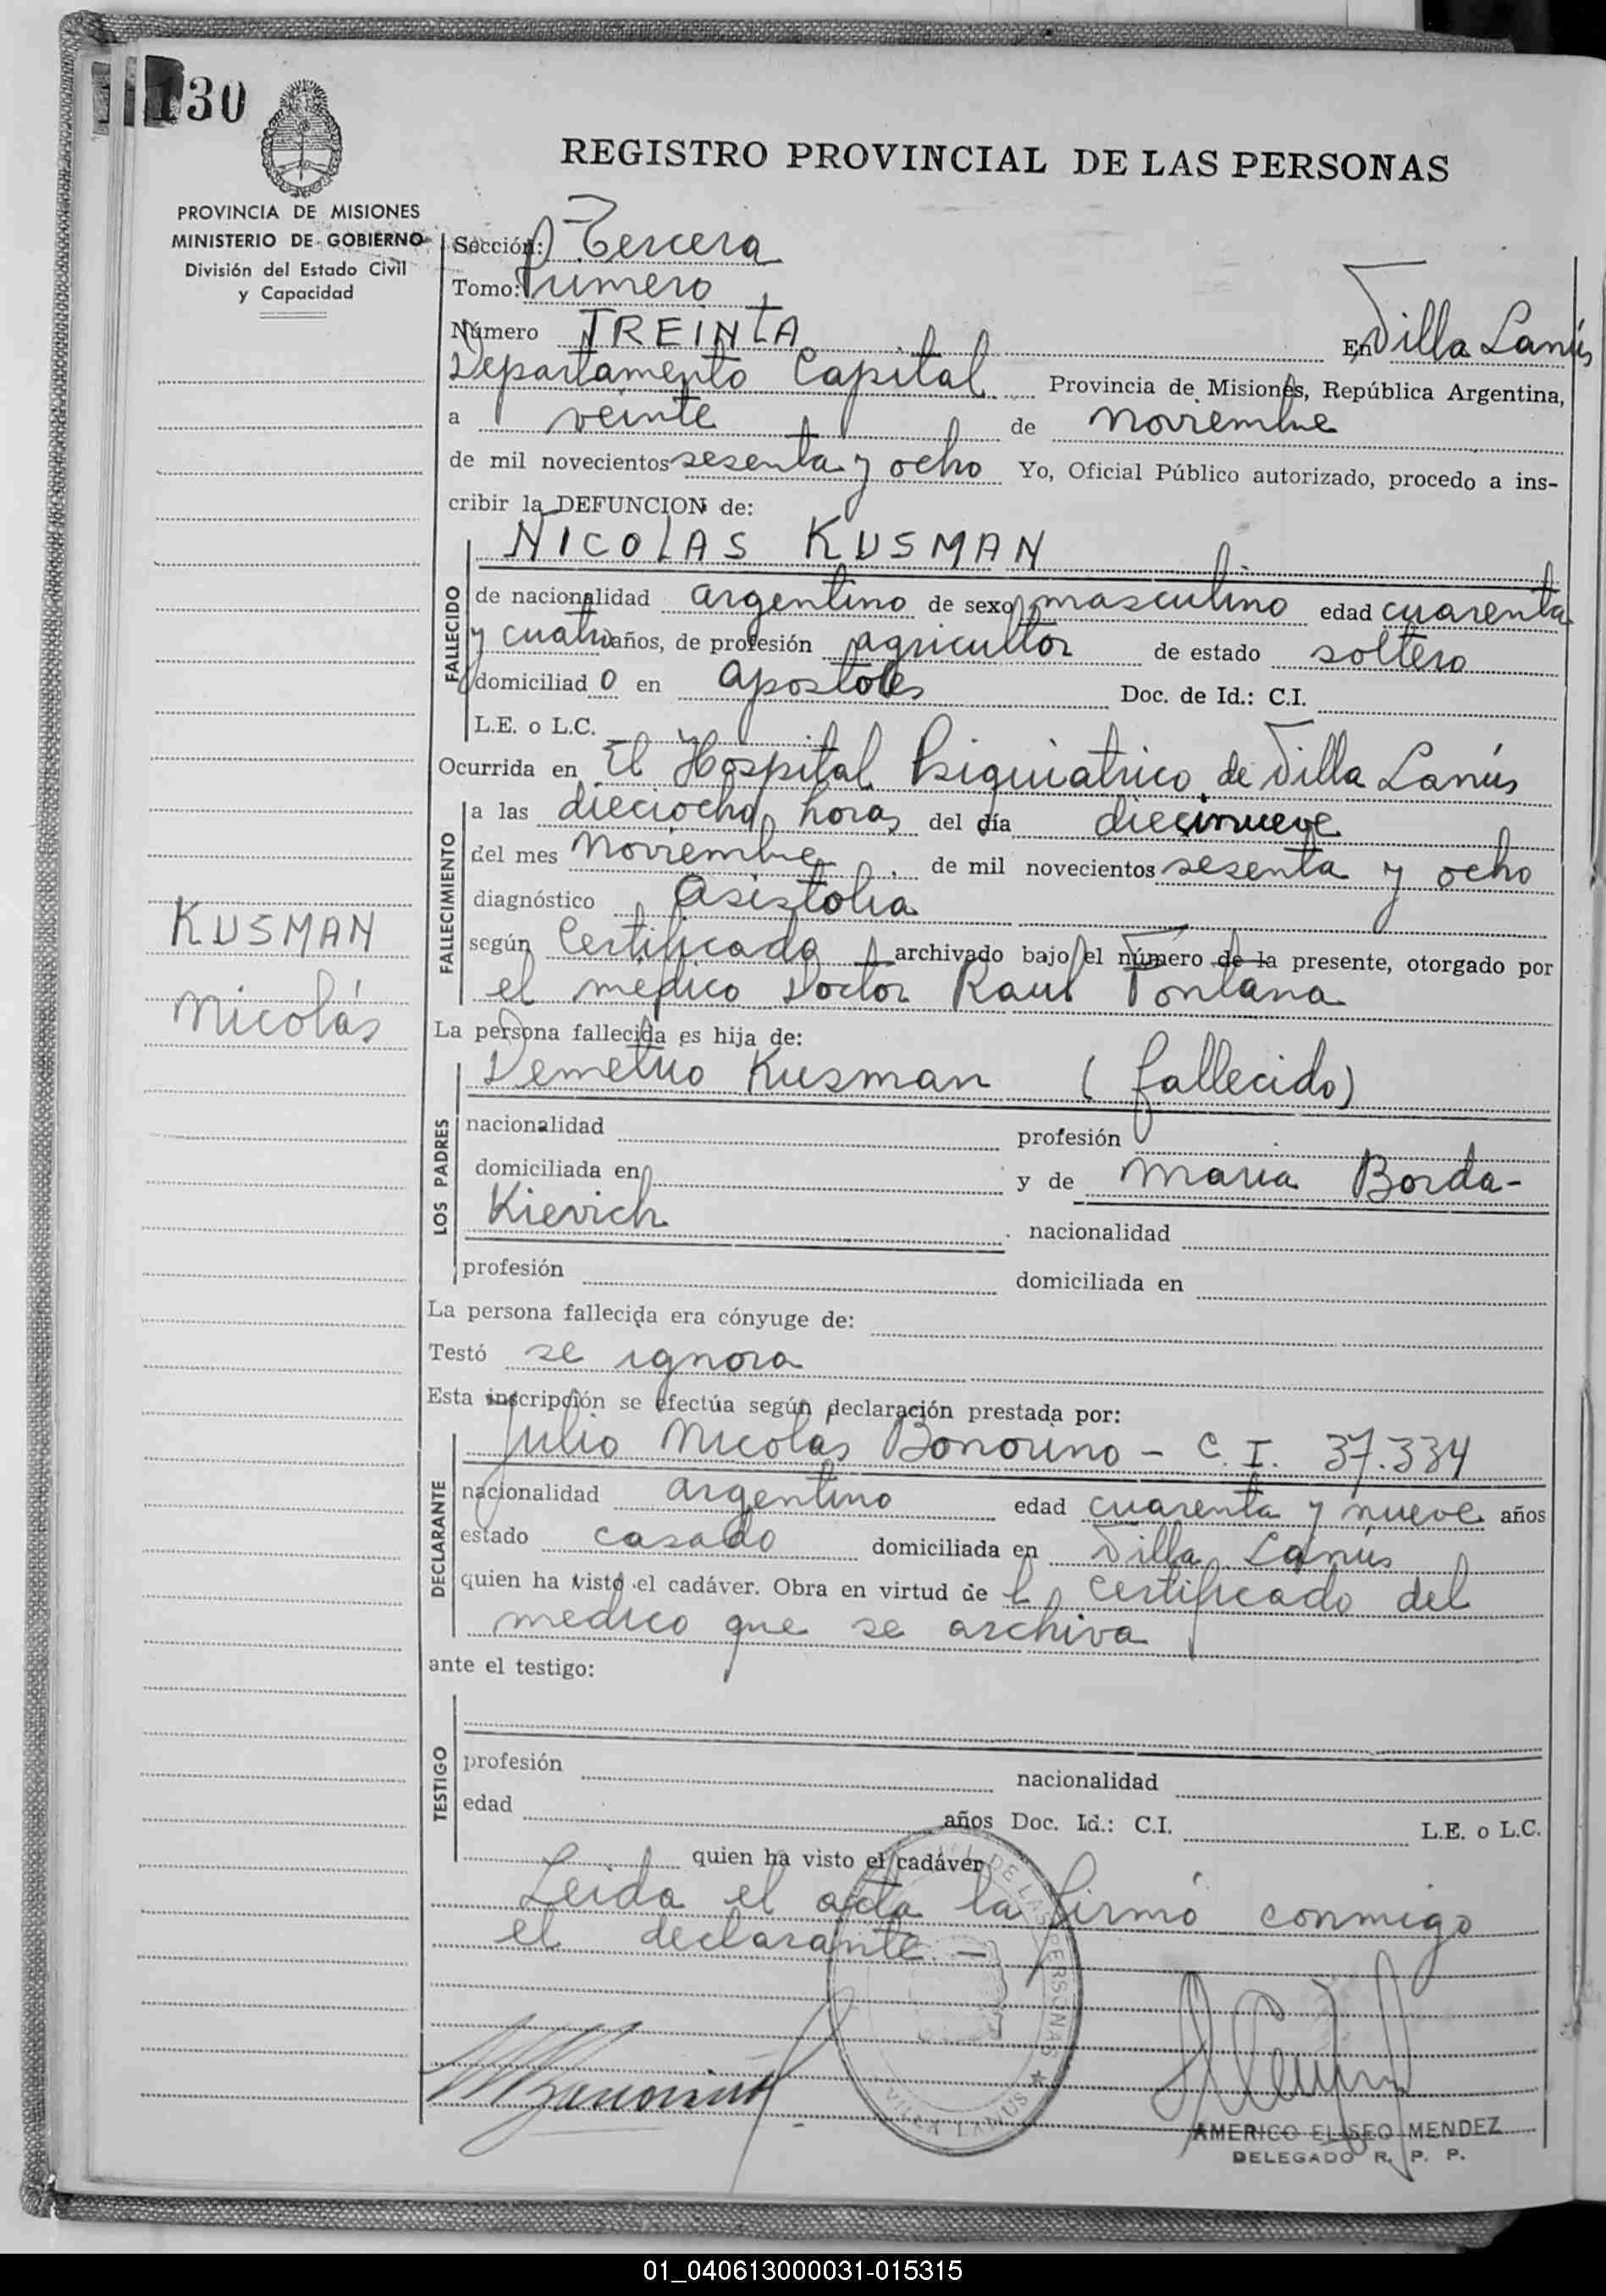 130
REGISTRO PROVINCIAL DE LAS PERSONAS
PROVINCIA DE MISIONES
MINISTERIO DE GOBIERNO
División del Estado Civil
y Capacidad
Sección: Tercera
Tomo: Primero
Número TREINTA En Villa Lanús
Departamento Capital Provincia de Misiones, República Argentina,
a veinte de noviembre
de mil novecientos sesenta y ocho Yo, Oficial Público autorizado, procedo a ins-
cribir la DEFUNCION de:
NICOLAS KUSMAN
FALLECIDO
de nacionalidad argentino de sexo masculino edad cuarenta
y cuatro años, de profesión agricultor de estado soltero
domiciliado en Apostoles Doc. de Id.: C.I.
L.E. o L.C.
Ocurrida en El Hospital Psiquiatrico de Villa Lanús
FALLECIMIENTO
a las dieciocho horas del día diecinueve
del mes noviembre de mil novecientos sesenta y ocho
diagnóstico Asistolia
según Certificado archivado bajo el número de la presente, otorgado por
el médico Doctor Raul Fontana
KUSMAN
Nicolás
La persona fallecida es hija de:
LOS PADRES
Demetrio Kusman (fallecido)
nacionalidad profesión
domiciliada en y de Maria Borda-
Kievich nacionalidad
profesión domiciliada en
La persona fallecida era cónyuge de:
Testó se ignora
Esta inscripción se efectúa según declaración prestada por:
DECLARANTE
Julio Nicolas Bonorino - C.I. 37.334
nacionalidad argentino edad cuarenta y nueve años
estado casado domiciliada en Villa Lanús
quien ha visto el cadáver. Obra en virtud de El certificado del
medico que se archiva
ante el testigo:
TESTIGO
profesión nacionalidad
edad años Doc. Id.: C.I. L.E. o L.C.
quien ha visto el cadáver
Leida el acta la firmó conmigo
el declarante. -
DE LAS PERSONAS ★ VILLA LANUS
AMERICO ELISEO MENDEZ
DELEGADO R. P. P.
01_040613000031-015315